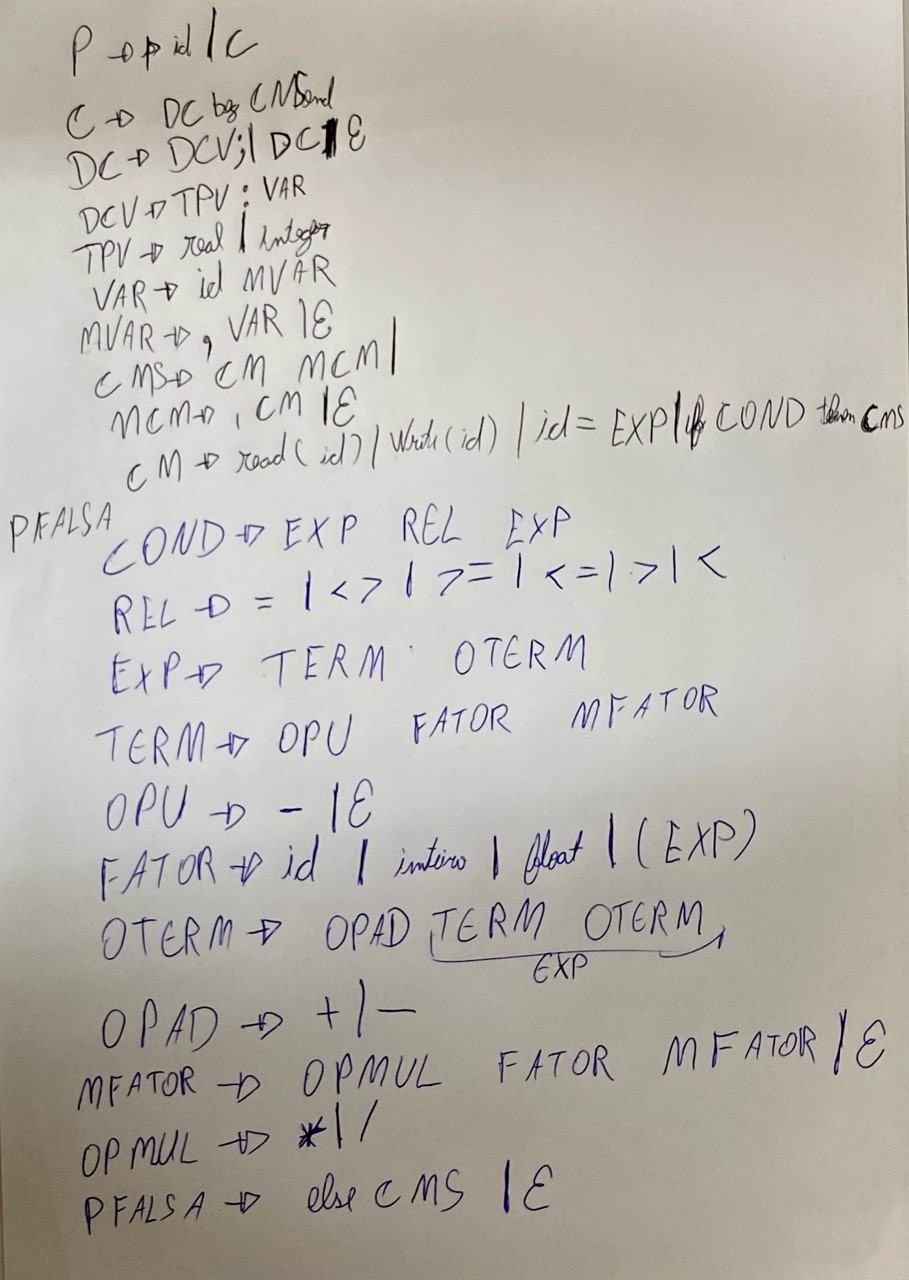 P → p id / C
C → DC beg CMS end
DC → DCV; | DC | ε
DCV → TPV : VAR
TPV → real | integer
VAR → id MVAR
MVAR → , VAR | ε
CMS → CM MCM |
MCM → , CM | ε
CM → read (id) | Write (id) | id = EXP | if COND then CMS
PFALSA
COND → EXP REL EXP
REL → = | <> | >= | <= | > | <
EXP → TERM OTERM
TERM → OPU FATOR MFATOR
OPU → - | ε
FATOR → id | inteiro | float | (EXP)
OTERM → OPAD TERM OTERM
EXP
OPAD → + | -
MFATOR → OPMUL FATOR MFATOR | ε
OPMUL → * | /
PFALSA → else CMS | ε